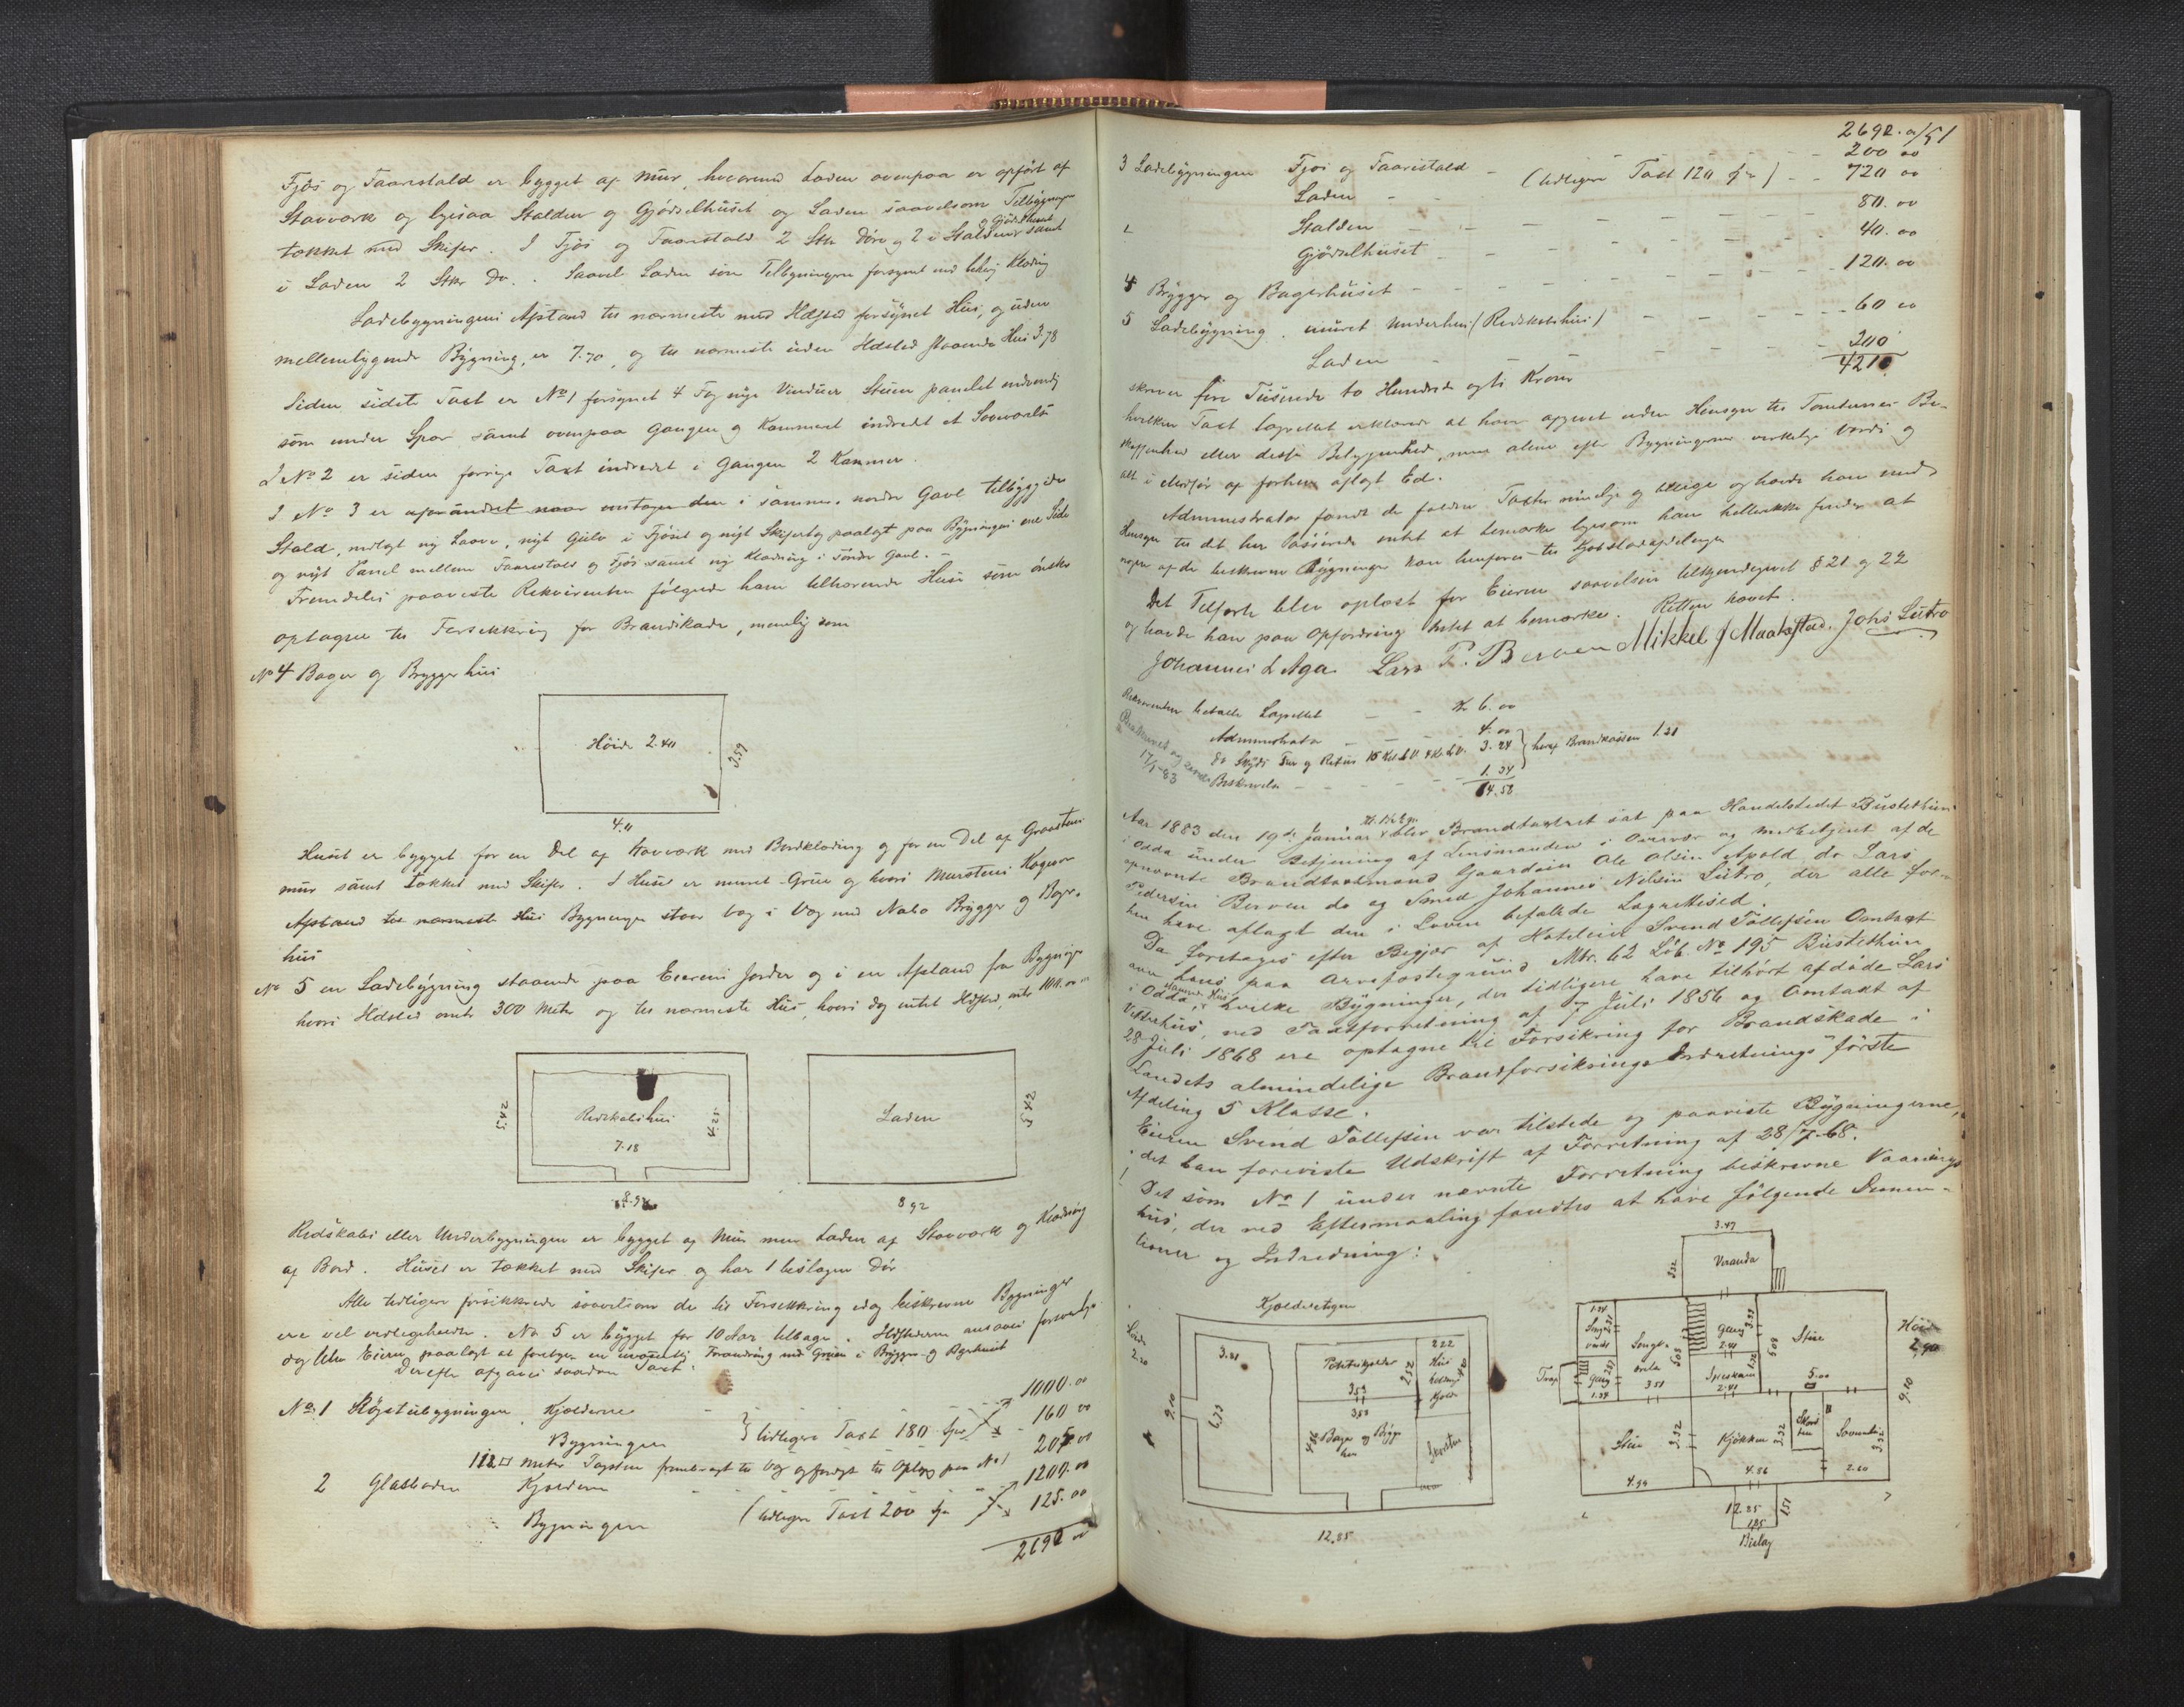 Fjös og Faarestald er bygget af Mur, hvorimod Laden ovenpaa er opført af
Stavværk og ligesaa Stalden og Gjødselhuset og Laden saavelsom Tilbygningen
tækket med Skifer. I Fjös og Faarestald 2 Stkr Döre og 2 i Stalden og Gjödselhuset samt
i Laden 2 Stkr Do. Saavel Laden som Tilbygningen forsynet med Klædning
Ladebygningens Afstand til nærmeste med Ildsted forsynet Hus, og uden
mellemliggende Bygning, er 7.70, og til nærmeste uden Ildsted staaende Hus 3.78
Siden sidste Taxt er No 1 forsynet 4 Fag nye Vinduer, Stuen panelet indvendig
som under Spær samt ovenpaa Gangen og Kammeret indredet et Soveværelse
I No 2 er siden forrige Taxt indredet i Gangen 2 Kammer.
I No 3 er uforandret naar undtages den i sammes nordre Gavl tilbyggede
Stald, indlagt ny Laave, nyt Gulv i Fjöset og nyt Skifertag paalagt paa Bygningens ene Side
og nyt Panel mellem Faarestald og Fjös samt ny Klædning i söndre Gavl. –
Fremdeles paaviste Rekvirenten fölgende ham tilhørende Huse som önskes
optagne til Forsikkring for Brandskade, nemlig som
No 4 Bager og Bryggerhus
Höide 2.40
3.59
4.11
Huset er bygget for en Del af Stavværk med Bordklædning og for en Del af Graastens
mur samt tækket med Skifer. I Huset er muret Grue og hvori Murstens Kogeovn
Afstand til nærmeste Hus Bygningen staar Væg i Væg med Nabo Brygger og Bager-
hus
No 5 en Ladebygning staaende paa Eierens Jorder og i en Afstand fra Bygninger
hvori Ildsted omtr 300 Meter og til nærmeste Hus, hvori dog intet Ildsted, omtr 100.00 m
Redskabshus
7.18
8.92
Laden
5.42
8 92
Redskabs eller Underbygningen er bygget af Mur men Laden af Stavværk og Klædning
af Bord. Huset er tækket med Skifer og har 1 beslagen Dör
Alle tidligere forsikkrede saavelsom de til Forsikkring idag beskrevne Bygninger
ere vel vedligeholdte. No 5 er bygget for 10 Aar tilbage. Ildstederne ansaaes forsvarlige
dog blev Eieren paalagt at foretage en Forandring med Gruen i Brygger og Bagerhuset
Derefter afgaves saadan Taxt:
No 1 Rögstubygningen Kjælderne – 1000.00
Bygningen } tidligere Taxt 180 Spd – 160 00
112 □ Meter Tagsten frembragt til og færdigt til Oplæg paa No 1 205 00
2 Glasboden Kjælderen – 1200.00
Bygningen (tidligere Taxt 200 Spd 125.00
2690 00
2692.0/51
3 Ladebygningen Fjös og Faarestald – 200 00
Laden – (tidligere Taxt 120 Spd) – 720 00
Stalden – 80.00
Gjödselhuset – 40.00
4 Brygger og Bagerhuset – 120.00
5 Ladebygning. muret Underhus (Redskabshus) – 60 00
Laden – 200
4210
skriver fire Tusinde to Hundrede og ti Kroner
hvilken Taxt Lagrettet erklærede at have afgivet uden Hensyn til Tomternes Be-
skaffenhed eller disses Beliggenhed, men alene efter Bygningernes virkelige Værdi og
alt i Medför af forhen aflagt Ed.
Administrator fandt de faldne Taxter rimelige og billige og havde han med
Hensyn til det her Passerede intet at bemærke ligesom han hellerikke finder at
nogen af de beskrevne Bygninger kan henføres til Kjøbstadafdelingen
Det Tilförte blev oplæst for Eieren saavelsom tilkjendegivet § 21 og 22
og havde han paa Opfordring intet at bemærke. Retten hævet.
Johannes L Aga Lars P. Berven Mikkel J Maakestad. Johs Lutro
Rekvirenten betalte Lagrettet – Kr 6.00
Administrator – 4.00
Do Skyds Tur og Retur 3.24 } heraf Brandkassen 1.31
Beskrivelse – 1.34
14.58
17/1-83
Aar 1883 den 19de Januar blev Brandtaxtret sat paa Handelsstedet Bustethun
i Odda under Betjening af Lensmanden i Overvær og medbetjent af de
opnævnte Brandtaxtmænd Gaardmn Ole Olsen Apold do Lars
Pedersen Berven do og Smed Johannes Nilsen Lutro, der alle for-
hen have aflagt den i Loven befalede Lagrettesed.
Da foretages efter Begjær af Hoteleier Svend Tollefsen Omtaxt
over hans paa Arvefæstegrund Mtr. 62 Löb No 195 Bustethun
i Odda, hvilke Bygninger, der tidligere have tilhört afdöde Lars
Vistehus, ved Taxtforretning af 7 Juli 1856 og Omtaxt af
28 Juli 1868 ere optagne til Forsikring for Brandskade i
Landets almindelige Brandforsikrings Indretnings förste
Afdeling 5 Klasse.
Eieren Svend Tollefsen var tilstede og paaviste Bygningerne,
idet han foreviste Udskrift af Forretning af 28/7-68.
Det som No 1 under nævnte Forretning beskrevne Vaanings
hus, der ved Eftermaaling fandtes at have fölgende Dimen-
tioner og Indredning:
Kjælderetagen
Höide
2.20
9.10
3.41
6.73
Poteteskjelder
3.53
2.52
2.22
Hus
holdnings
Kjelder
4.86
Bager og Brygger
hus
Skorsten
12.85
3.47
Veranda
3.32
1.34
Senge
Trap
Gang
1.34
Senge-
3.51
5.03
Gang
2.41
Spisekam
2.41
3.33
5.08
Stue
5.00
Höide
2.90
9.10
Stue
3.32
4.99
Kjökken
3.32
4.86
Skors
ten
Sovev.
3.32
2.60
12.85
1.85
1.51
Bislag